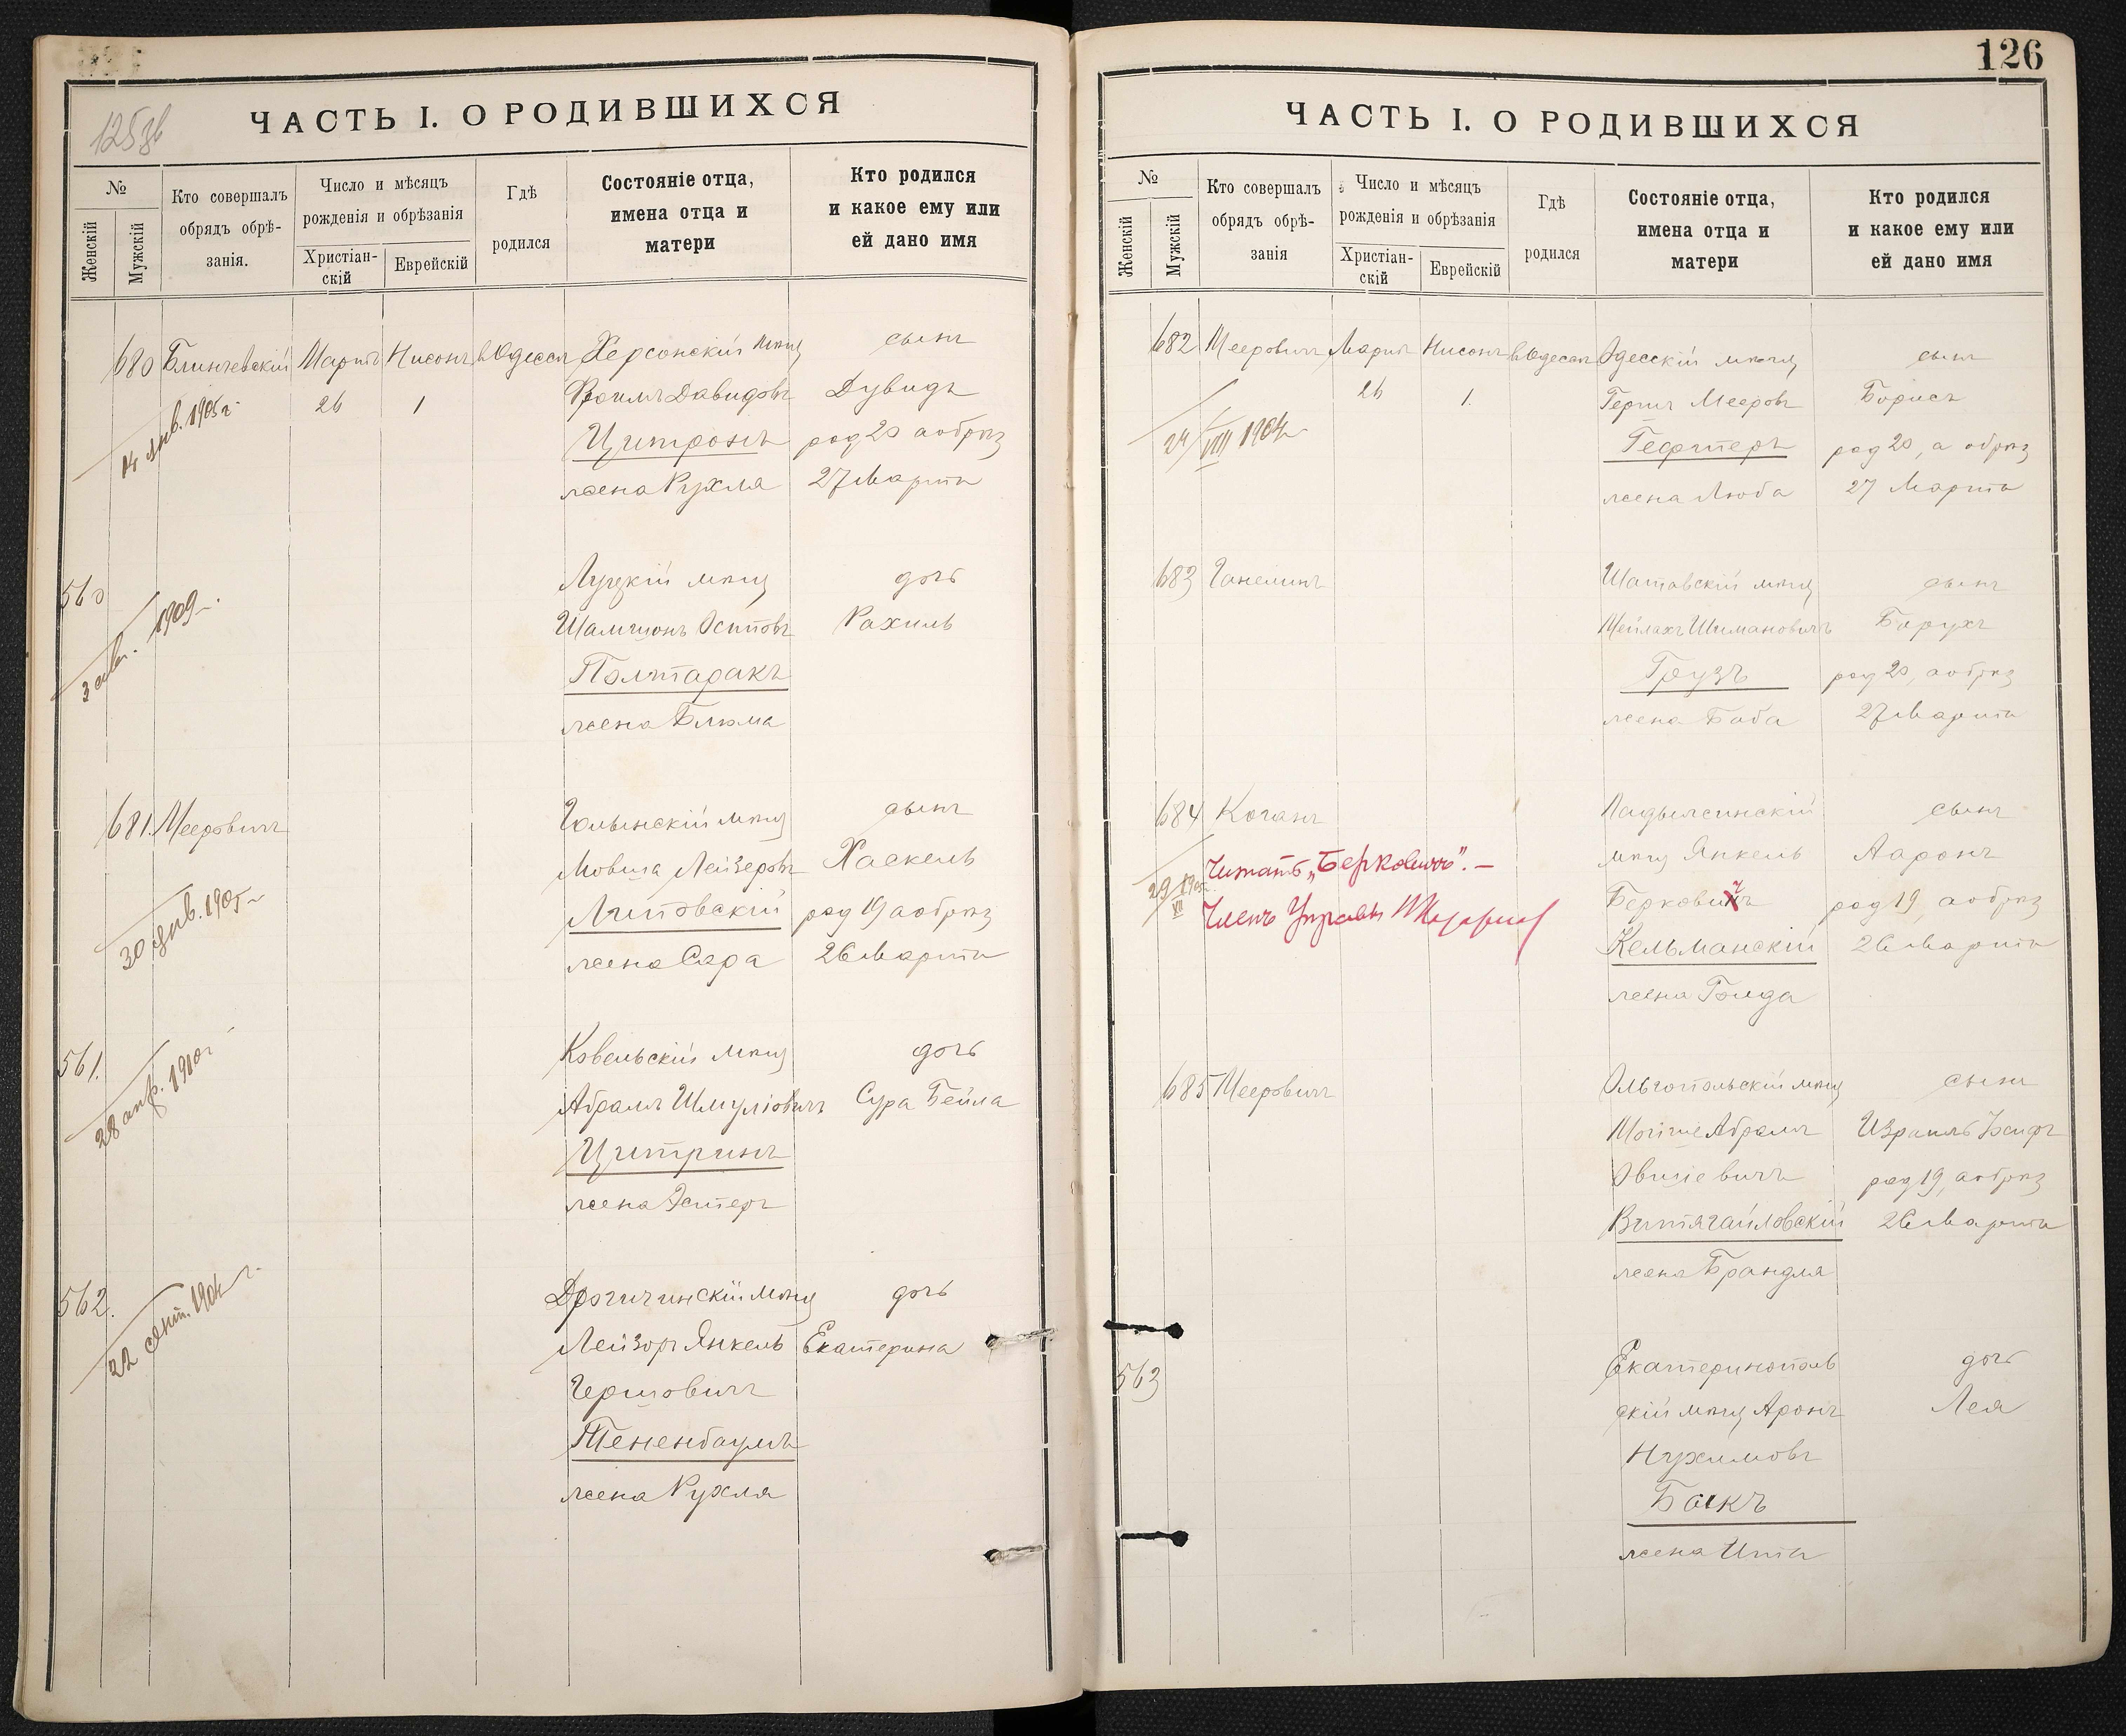 125об
ЧАСТЬ I. О РОДИВШИХСЯ
№
Женскій
Мужскій
Кто совершалъ обрядъ обрѣ-занія.
Число и мѣсяцъ рожденія и обрѣзанія
Христіан-скій
Еврейскій
Гдѣ родился
Состояніе отца, имена отца и матери
Кто родился и какое ему или ей дано имя
680 Блинчевскій Мартъ Нисонъ въ Одессѣ Херсонскій мѣщ сынъ
26 1 Фроимъ Давидовъ Дувидъ
14 янв. 1905 г.
Цитронъ род 20 а обрѣз
жена Рухля 27 Марта
560 Луцкій мѣщ дочь
Шамшонъ Осиповъ Рахиль
1909
Полтаракъ
жена Блюма
681. Мееровичъ Голынскій мѣщ сынъ
Мовша Лейзеровъ Хаскель
30 янв. 1905 г
Липовскій род 19 а обрѣз
жена Сара 26 Марта
561. Ковельскій мѣщ дочь
28 апр. 1910 г
Абрамъ Шмуліовичъ Сура Бейла
Цитринъ
жена Эстеръ
562. Дрогичинскій мѣщ дочь
22 сент. 1904 г.
Лейзоръ Янкель Екатерина
Гершовичъ
Тененбаумъ
жена Рухля
126
ЧАСТЬ I. О РОДИВШИХСЯ
№
Женскій
Мужскій
Кто совершалъ обрядъ обрѣ-занія
Число и мѣсяцъ рожденія и обрѣзанія
Христіан-скій
Еврейскій
Гдѣ родился
Состояніе отца, имена отца и матери
Кто родился и какое ему или ей дано имя
682 Мееровичъ Мартъ Нисонъ въ Одессѣ Одесскій мѣщ сынъ
26 1. Гершъ Мееровъ Борисъ
24/VIII 1904 г
Гефтеръ род 20, а обрѣз
жена Люба 27 Марта
683 Ганелинъ Шатавскій мѣщ сынъ
Мейлахъ Шимановичъ Борухъ
Грузъ род 20, а обрѣз
жена Баба 27 Марта
684 Коганъ Ладыжинскій сынъ
мѣщ Янкель Ааронъ
Читать „Берковичъ". —
29/VII 1905 г.
Берковичъ род 19, а обрѣз
Членъ Управы
Кельманскій 26 Марта
жена Голда
685 Мееровичъ Ольгопольскій мѣщ сынъ
Мошие Абрамъ Израиль Іосифъ
Овшіевичъ род 19, а обрѣз
Витягайловскій 26 Марта
жена Брандля
563 Екатеринополь дочь
скій мѣщ Аронъ Лея
Нухимовъ
Баскъ
жена Ита